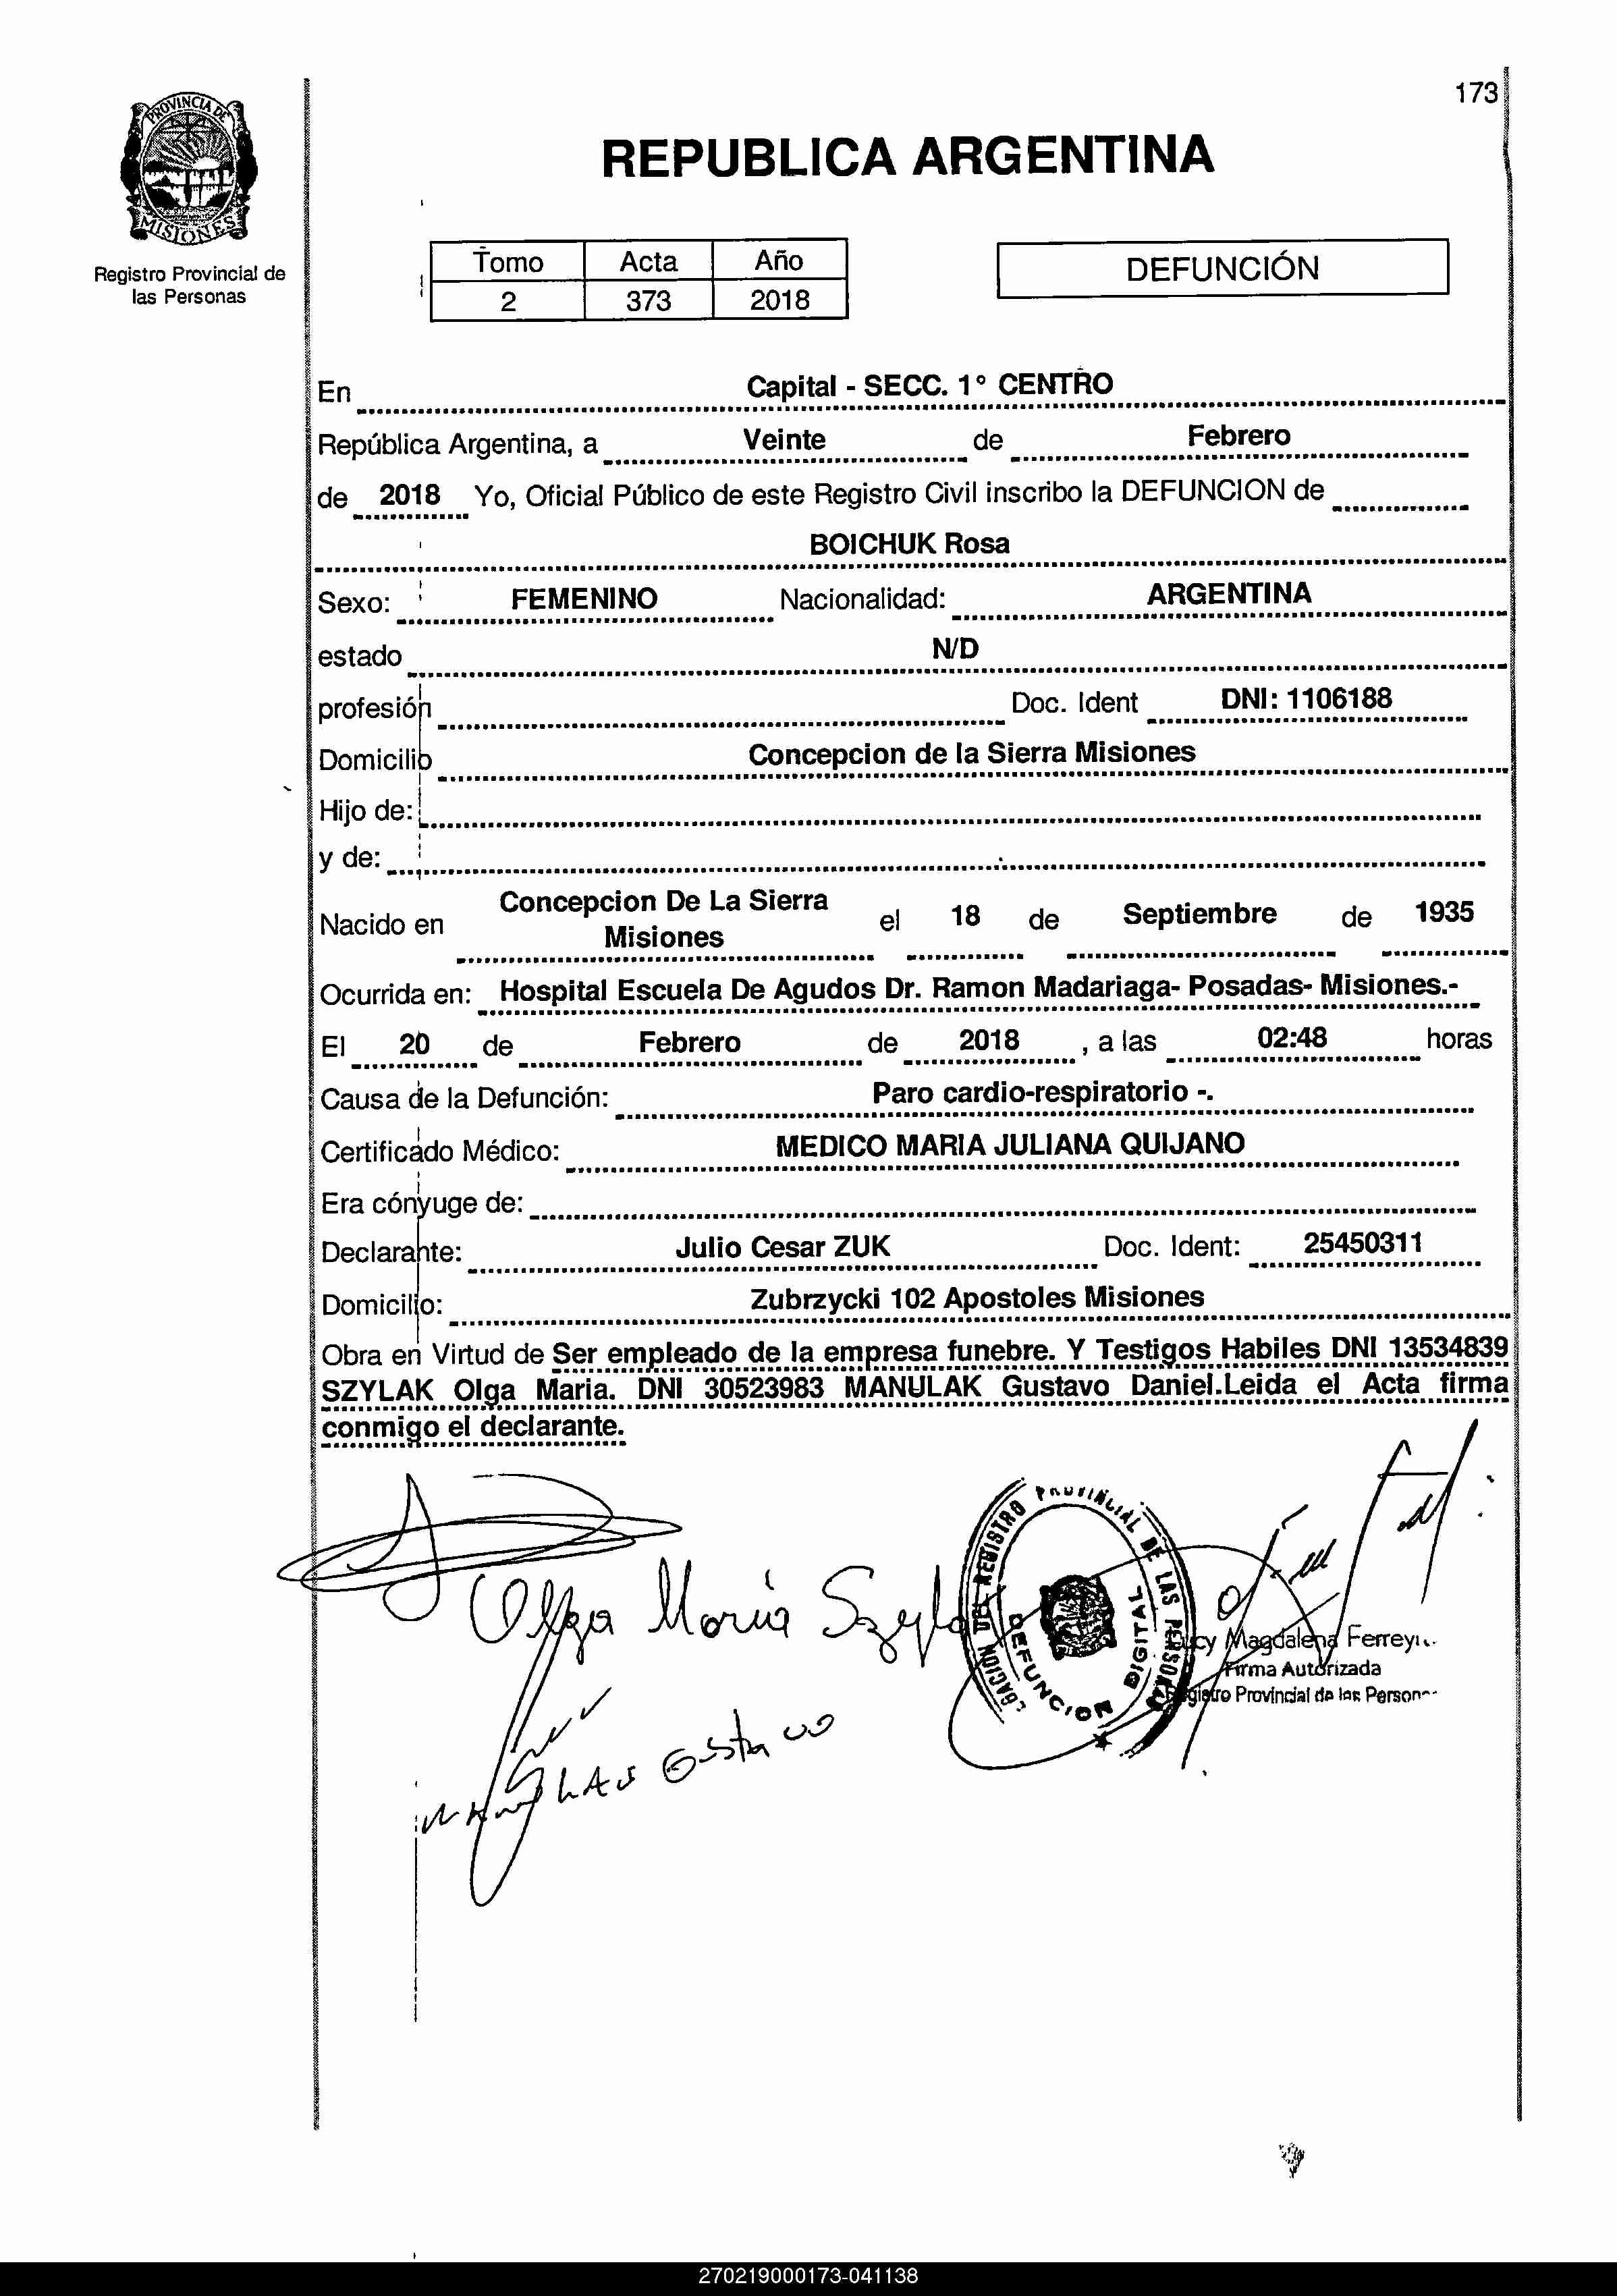 173
PROVINCIA DE
MISIONES
Registro Provincial de
las Personas
REPUBLICA ARGENTINA
Tomo Acta Año
2 373 2018
DEFUNCIÓN
En Capital - SECC. 1° CENTRO
República Argentina, a Veinte de Febrero
de 2018 Yo, Oficial Público de este Registro Civil inscribo la DEFUNCION de
BOICHUK Rosa
Sexo: FEMENINO Nacionalidad: ARGENTINA
estado N/D
profesión Doc. Ident DNI: 1106188
Domicilio Concepcion de la Sierra Misiones
Hijo de:
y de:
Nacido en Concepcion De La Sierra
Misiones el 18 de Septiembre de 1935
Ocurrida en: Hospital Escuela De Agudos Dr. Ramon Madariaga- Posadas- Misiones.-
El 20 de Febrero de 2018 , a las 02:48 horas
Causa de la Defunción: Paro cardio-respiratorio -.
Certificado Médico: MEDICO MARIA JULIANA QUIJANO
Era cónyuge de:
Declarante: Julio Cesar ZUK Doc. Ident: 25450311
Domicilio: Zubrzycki 102 Apostoles Misiones
Obra en Virtud de Ser empleado de la empresa funebre. Y Testigos Habiles DNI 13534839
SZYLAK Olga Maria. DNI 30523983 MANULAK Gustavo Daniel.Leida el Acta firma
conmigo el declarante.
Olga Maria Szylak
Gustavo
DEL REGISTRO PROVINCIAL DE LAS PERSONAS
DEFUNCION DIGITAL
Magdalena
Firma Autorizada
Provincial de las
270219000173-041138